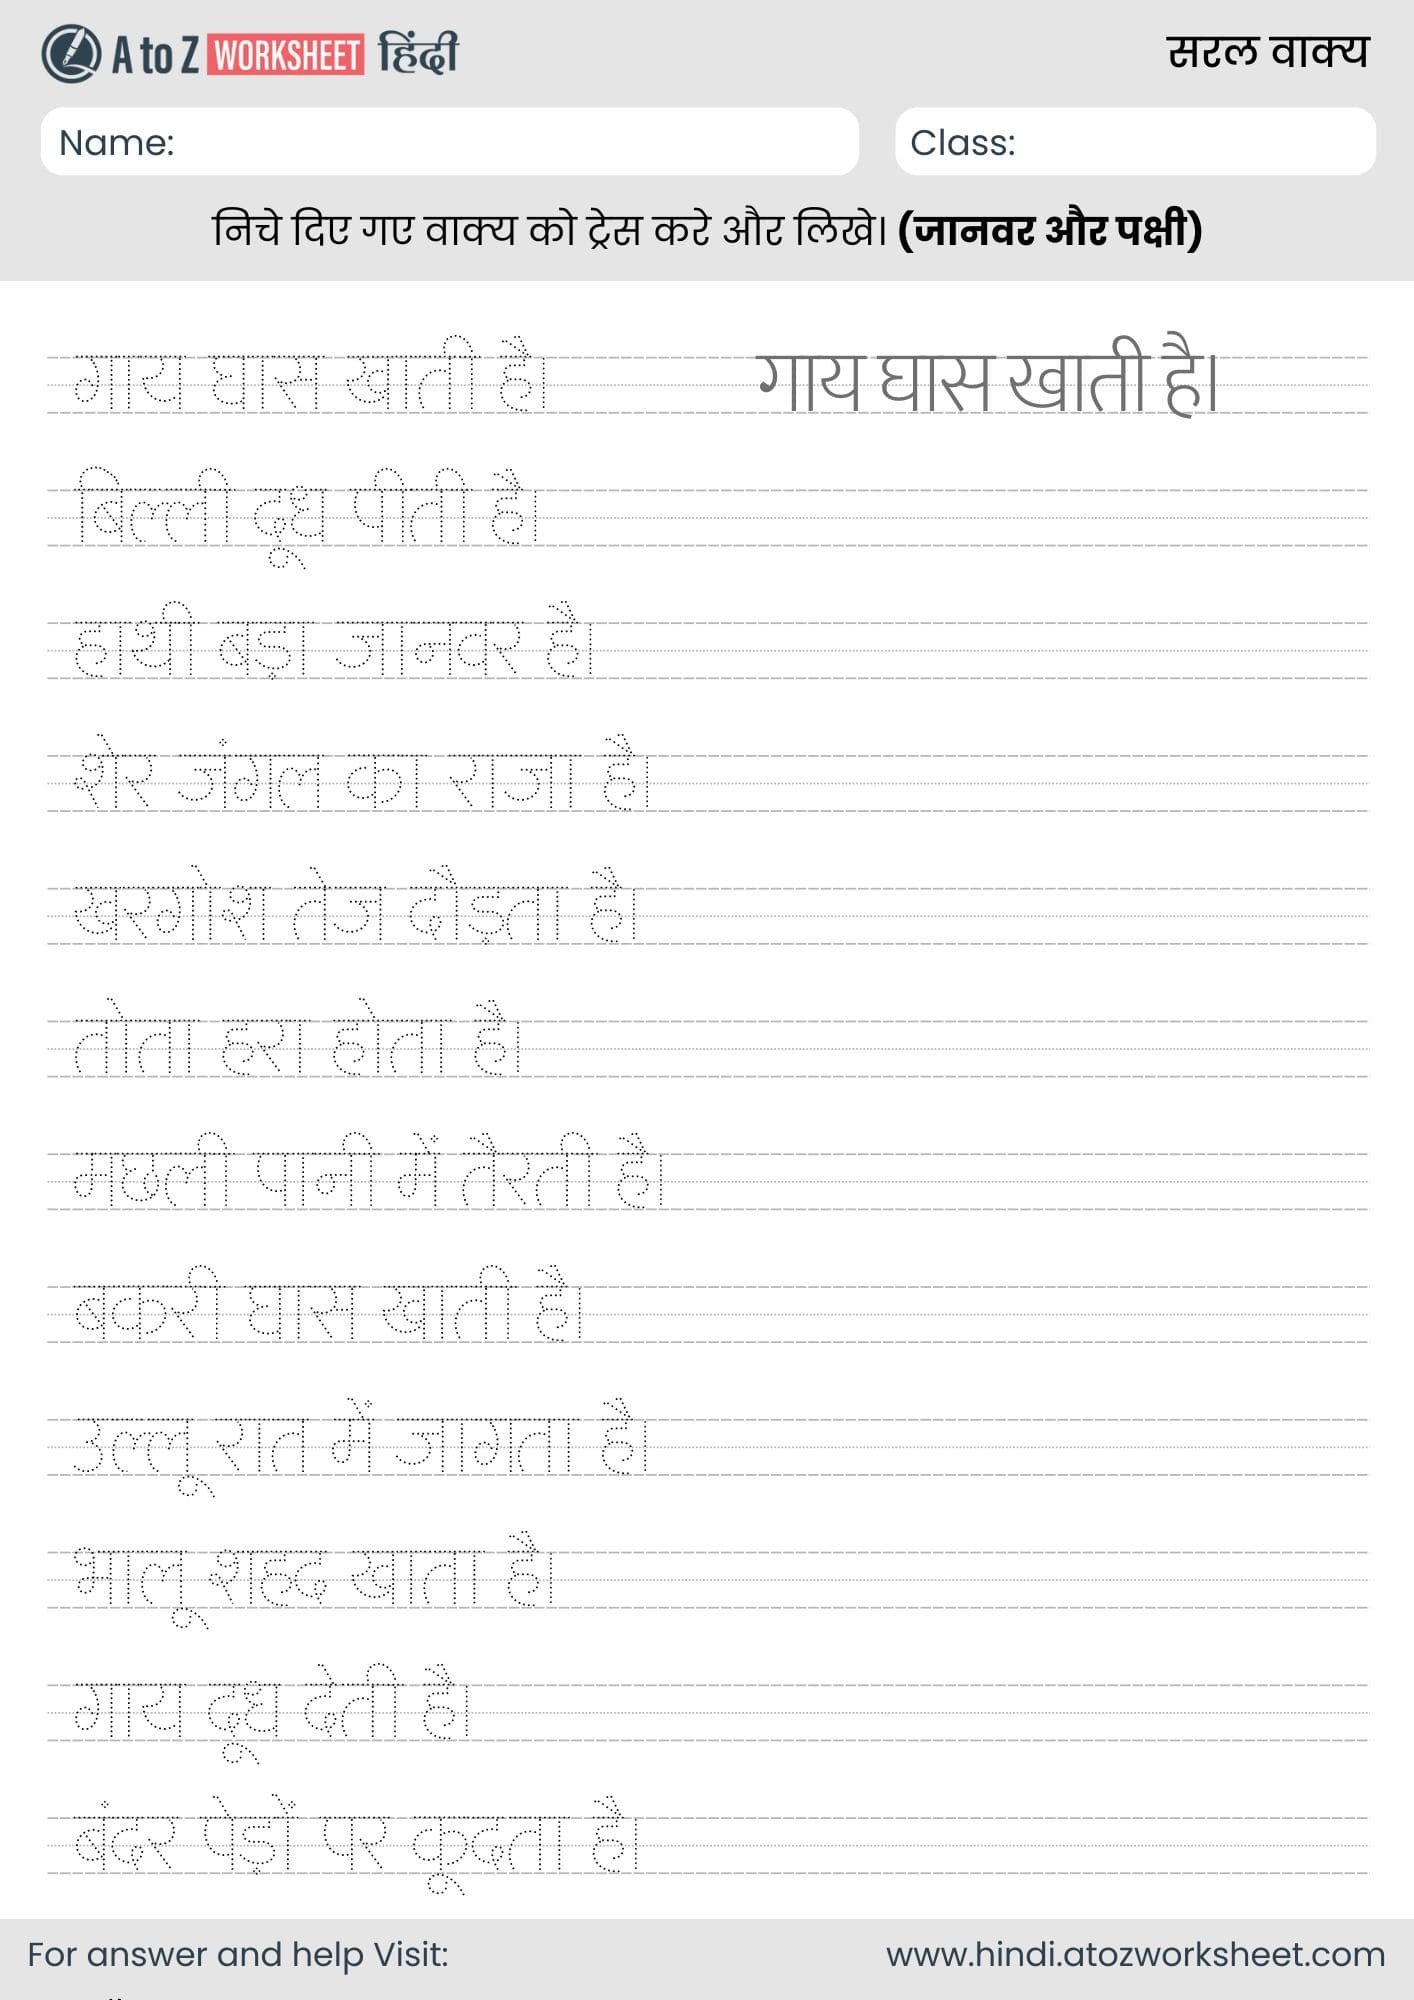 A to Z WORKSHEET हिंदी
सरल वाक्य
Name:
Class:
निचे दिए गए वाक्य को ट्रेस करे और लिखे। (जानवर और पक्षी)
गाय घास खाती है। गाय घास खाती है।
बिल्ली दूध पीती है।
हाथी बड़ा जानवर है।
शेर जंगल का राजा है।
खरगोश तेज दौड़ता है।
तोता हरा होता है।
मछली पानी में तैरती है।
बकरी घास खाती है।
उल्लू रात में जागता है।
भालू शहद खाता है।
गाय दूध देती है।
बंदर पेड़ों पर कूदता है।
For answer and help Visit:
www.hindi.atozworksheet.com